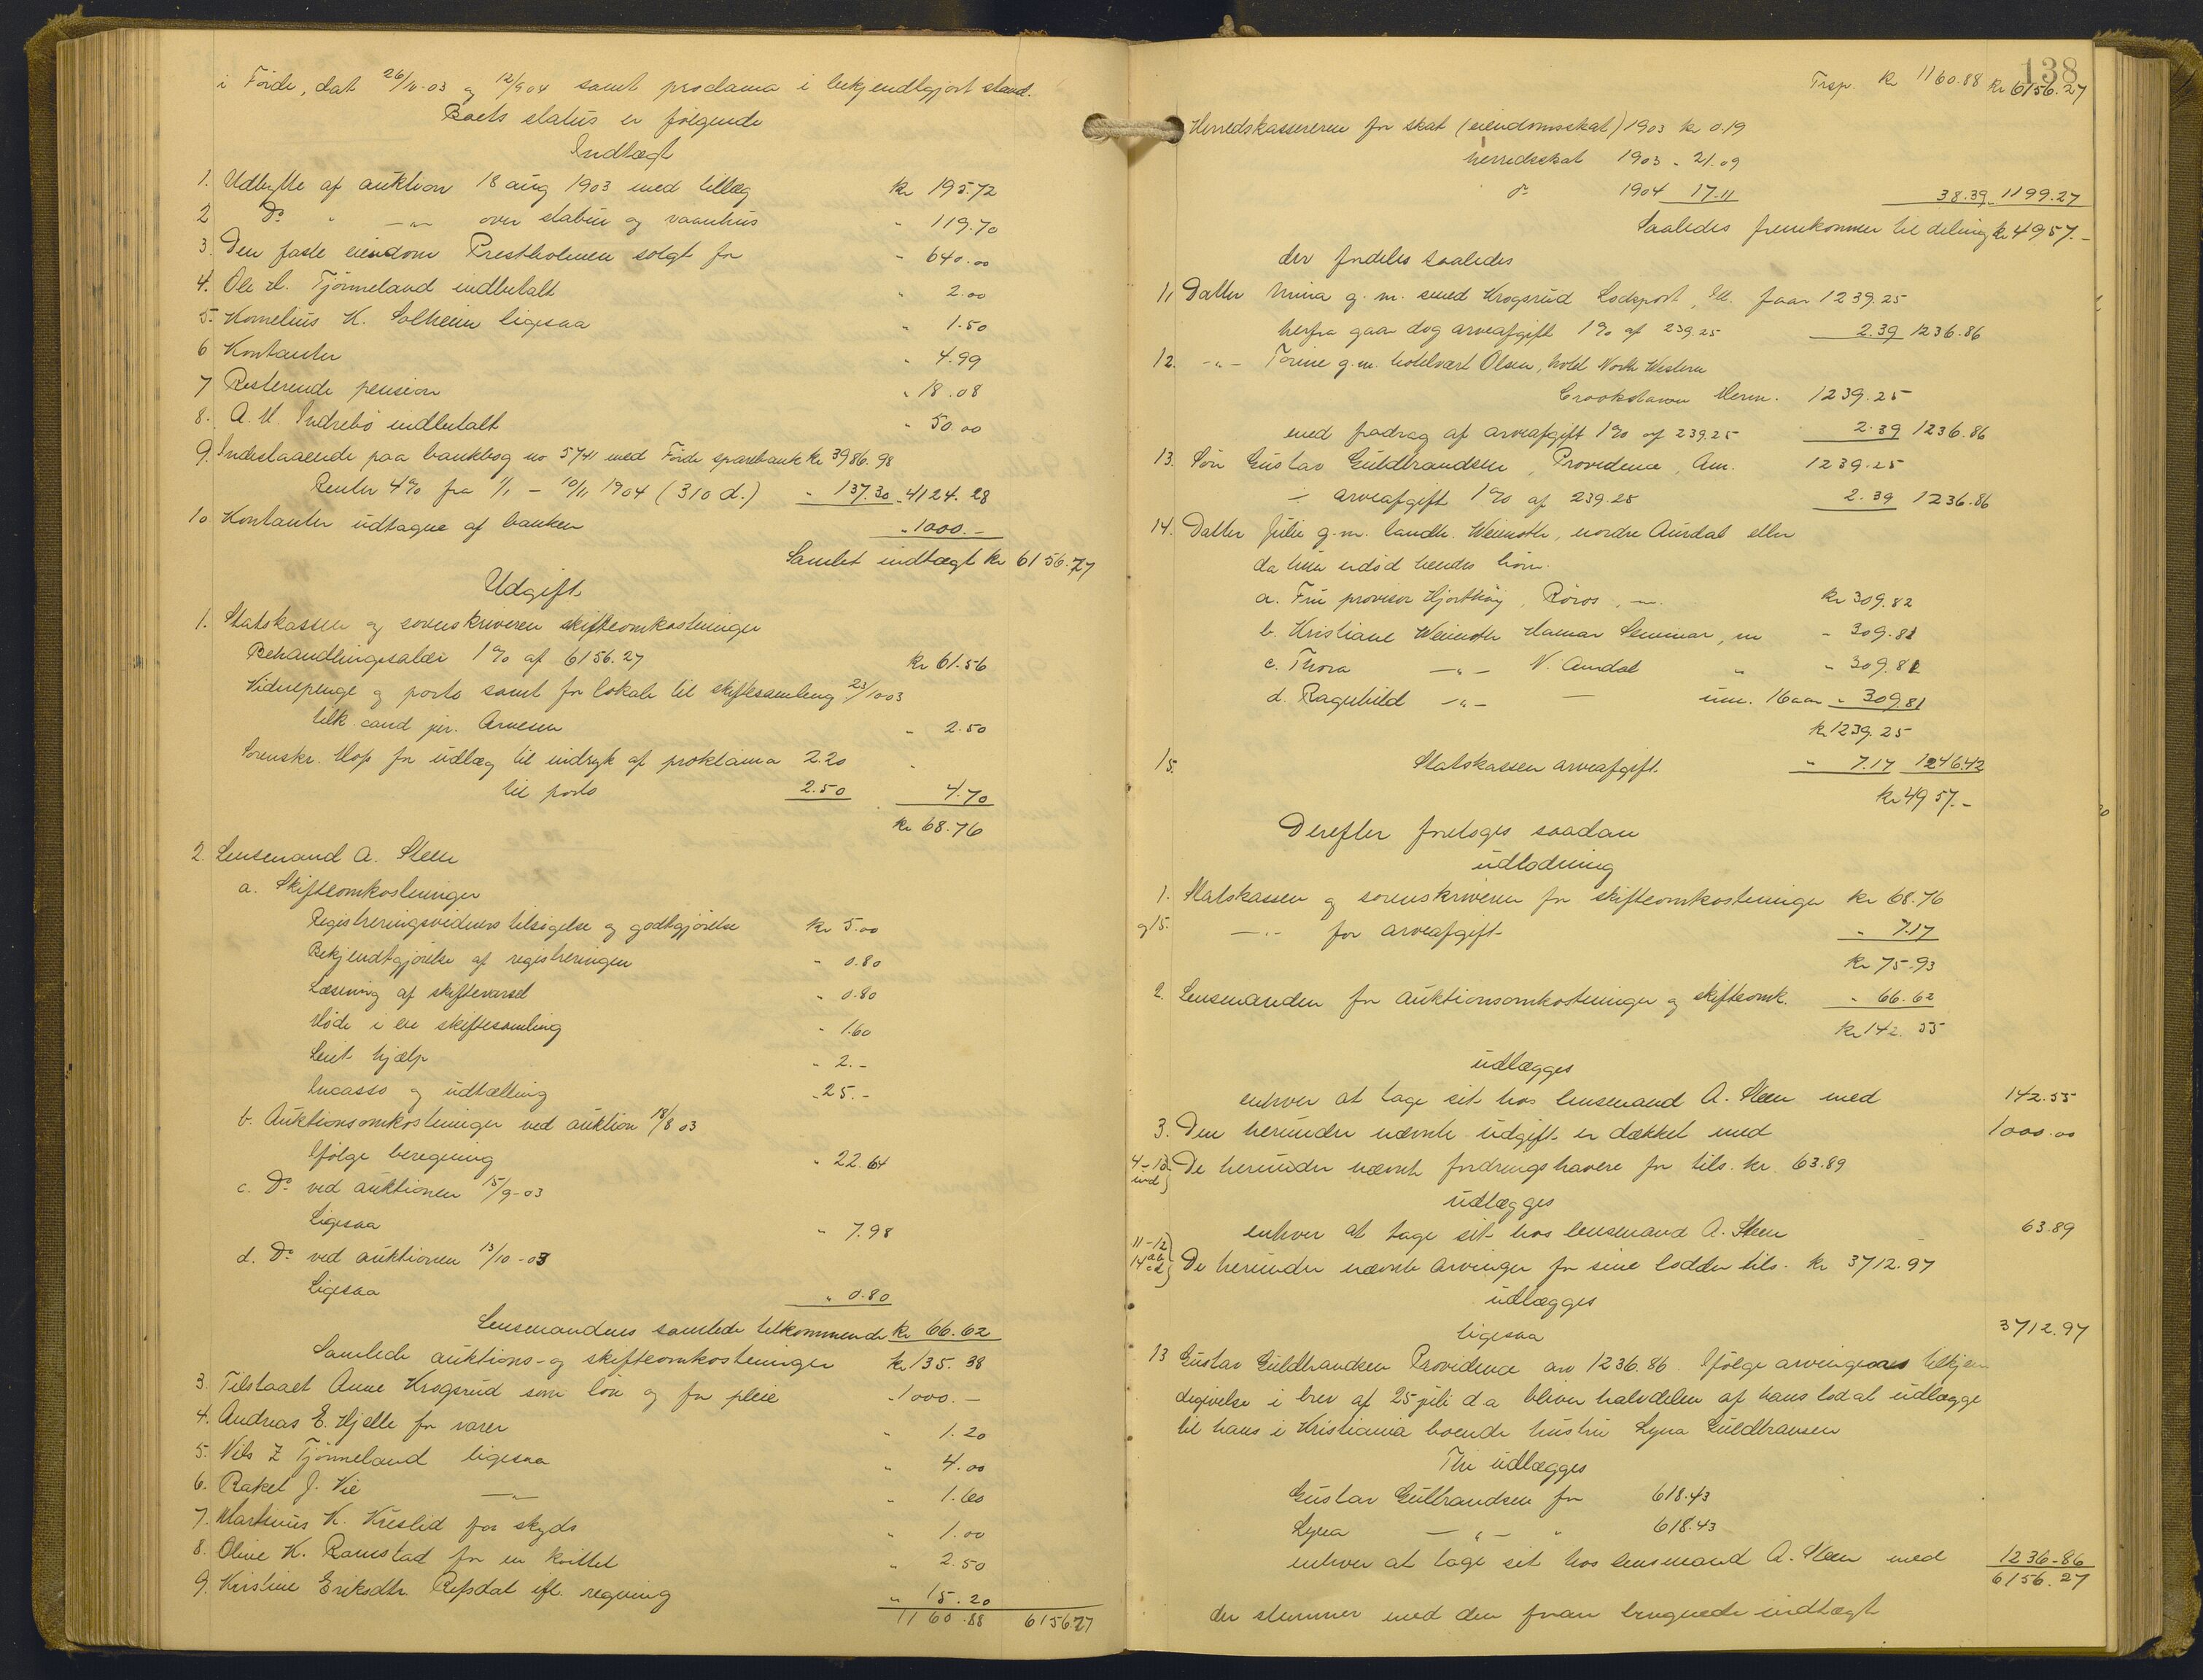 i Förde, dat 26/11-03 og 12/9 04 samt proclama i bekjendtgjort stand.
Boets status er følgende
Indtægt
1. Udbytte af auktion 18 aug 1903 med tillæg kr 195.72
2 Do " -"- over stabur og vaanhus " 119.70
3. Den faste eiendom Prestholmen solgt for - 640.00
4. Ole A. Tjønneland indbetalt " 2.00
5. Kornelius K. Solheim ligesaa " 1.50
6 Kontanter " 4.99
7 Resterende pension " 18.08
8. A. M. Indrebö indbetalt " 50.00
9. Indestaaende paa bankbog no 5741 med Förde sparebank kr 3986.98
Renter 4% fra 1/1 - 10/11 1904 (310 d.) " 137.30 " 4124.28
10 Kontanter udtagne af banken " 1000.-
Samlet indtægt kr 6156.27
Udgift
1. Statskassen og sorenskriveren skifteomkostninger
Behandlingssalær 1% af 6156.27 kr 61.56
Vidnepenge og porto samt for lokale til skiftesamling 23/10 03
tilk. cand jur. Arnesen " 2.50
Sorenskr. Hop for udlæg til indryk af proklama 2.20
til porto 2.50 " 4.70
kr 68.76
2. Lensmand A. Steen
a. Skifteomkostninger
Registreringsvidners tilsigelse og godtgjørelse kr 5.00
Bekjendtgjørelse af registreringen - 0.80
Læsning af skiftevarsel " 0.80
Møde i en skiftesamling " 1.60
Leiet hjælp " 2.-
Incasso og udtælling - 25.-
b. Auktionsomkostninger ved auktion 18/8 03
Ifølge beregning " 22.64
c. Do ved auktionen 15/9-03
Ligesaa " 7.98
d. Do ved auktionen 13/10-03
Ligesaa " 0.80
Lensmandens samlede tilkommende kr 66.62
Samlede auktions- og skifteomkostninger kr 135.38
3. Tilstaaet Anne Krogsrud som lön og for pleie - 1000.-
4. Andreas E. Hjelle for varer " 1.20
5. Nils Z Tjønneland ligesaa " 4.00
6. Rakel J. Vie -"- " 1.60
7. Martinus K. Kreslid for skyds " 1.00
8. Oline K. Ramstad for en kvittel " 2.50
9. Kristine Eriksdtr. Refsdal ifl. regning " 15.20
1160.88 6156.27
138
Trsp. kr 1160.88 kr 6156.27
Herredskassereren for skat (eiendomsskat) 1903 kr 0.19
herredsskat 1903 - 21.09
do 1904 17.11 38.39 " 1199.27
Saaledes fremkommer til deling kr 4957.-
der fordeles saaledes
11. Datter Mina g. m. smed Krogsrud Lockport, Ill. faar 1239.25
herfra gaar dog arveafgift 1% af 239.25 2.39 1236.86
12. -"- Torine g.m. hotelvært Olsen, hotel North Western
Crookstown Minn. 1239.25
med fradrag af arveafgift 1% af 239.25 2.39 1236.86
13. Sön Gustav Guldbrandsen, Providence, Am. 1239.25
÷ arveafgift 1% af 239.25 2.39 1236.86
14. Datter Julie g.m. landh. Weinoth, nordre Aurdal eller
da hun erdöd hendes börn.
a. Fru provisor Hjorthöy, Röros, kr 309.82
b. Kristiane Weinoth Hamar Seminar, m - 309.81
c. Thora -"- N. Aurdal " - 309.81
d. Ragnhild -"- - um. 16 aar " 309.81
kr 1239.25
15. Statskassen arveafgift. " 7.17 1246.42
kr 4957.-
Derefter foretoges saadan
udlodning
1. Statskassen og sorenskriveren for skifteomkostninger kr 68.76
og 15. -"- for arveafgift - " 7.17
kr 75.93
2. Lensmanden for auktionsomkostninger og skifteomk. " 66.62
kr 142.55
udlægges
enhver at tage sit hos lensmand A. Steen med 142.55
3. Den herunder nævnte udgift er dækket med 1000.00
4-10 incl } De herunder nævnte fordringshavere for tils. kr. 63.89
udlægges
enhver at tage sit hos lensmand A. Steen 63.89
11-12 14 ab cd } De herunder nævnte arvinger for sine lodder tils. kr 3712.97
udlægges
ligesaa 3712.97
13 Gustav Guldbrandsen Providence arv 1236.86. Ifølge arvingens tilkjen
degivelse i brev af 25 juli d.a bliver halvdelen af hans lod at udlægge
til hans i Kristiania boende hustru Lyna Guldbransen
Thi udlægges
Gustav Gulbrandsen for 618.43
Lyna -"- " 618.43
enhver at tage sit hos lensmand A. Steen med 1236.86
6156.27
der stemmer med den foran beregnede indtægt